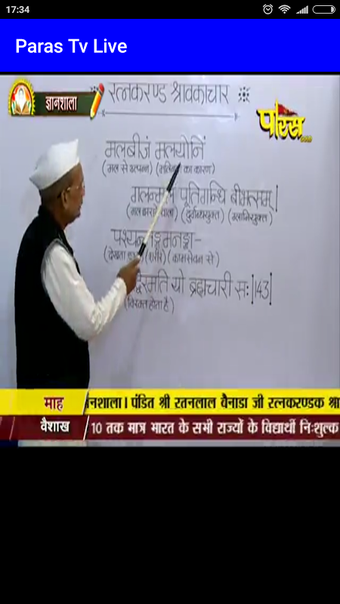 17:34
Paras Tv Live
ज्ञानशाला
रत्नकरण्ड श्रावकाचार
पारस
मलबीजं मलयोनिं
(मल से उत्पन्न) का कारण)
गलन्मलं पूतिगन्धि बीभत्सम्।
(दुर्गन्धयुक्त) (ग्लानियुक्त)
पश्यन्नङ्गमनङ्गा-
(देखता (कामसेवन से)
द्विरमति यो ब्रह्मचारी सः||143||
(विरक्त होता है)
माह
ानशाला। पंडित श्री रतनलाल बैनाडा जी रत्नकरण्डक श्रा
वैशाख
10 तक मात्र भारत के सभी राज्यों के विद्यार्थी निःशुल्क